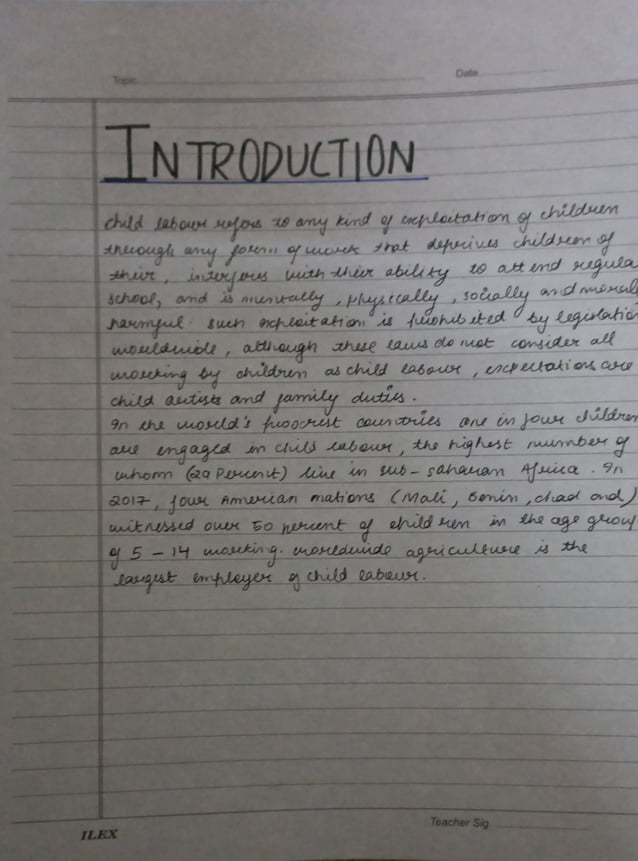 Topic
Date
INTRODUCTION
child labour refers to any kind of exploitation of children
through any form of work that deprives children of
their, interferes with their ability to attend regula
school, and is mentally, physically, socially and morall
harmful. such exploitation is prohibited by legislation
worldwide, although these laws do not consider all
working by children as child labour, expectations are
child artists and family duties.
In the world's poorest countries one in four children
are engaged in child labour, the highest number of
whom (29 Percent) live in sub-saharan Africa. In
2017, four American nations (Mali, Benin, chad and)
witnessed over 50 percent of children in the age group
of 5-14 working. worldwide agriculture is the
largest employer of child labour.
Teacher Sig
ILEX